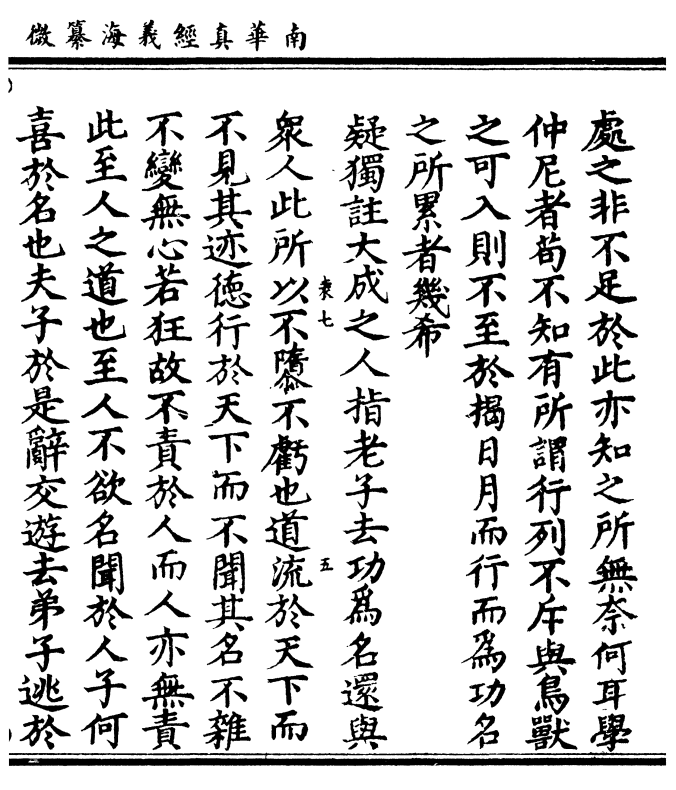 南華真經義海纂微
處之非不足於此亦知之所無奈何耳學
仲尼者苟不知有所謂行列不斥與鳥獸
之可入則不至於揭日月而行而爲功名
之所累者幾希
疑獨註大成之人指老子去功爲名還與
衆人此所以不隳不虧也道流於天下而
七
五
不見其迹德行於天下而不聞其名不雜
不變無心若狂故不責於人而人亦無責
此至人之道也至人不欲名聞於人子何
喜於名也夫子於是辭交遊去弟子逃於